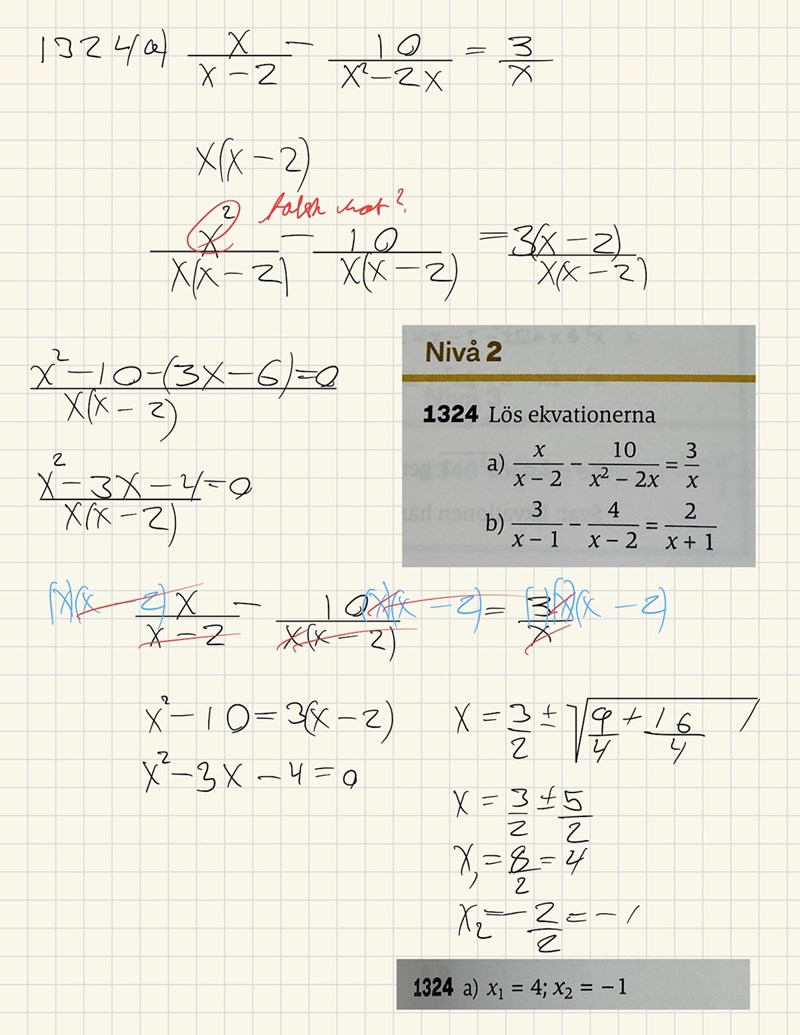 1324a) x/(x-2) - 10/(x²-2x) = 3/x
x(x-2)
x²/(x(x-2)) - 10/(x(x-2)) = 3(x-2)/(x(x-2))
(x²-10-(3x-6))/(x(x-2)) = 0
(x²-3x-4)/(x(x-2)) = 0
Nivå 2
1324 Lös ekvationerna
a) x/(x-2) - 10/(x²-2x) = 3/x
b) 3/(x-1) - 4/(x-2) = 2/(x+1)
(x)(x-2) x/(x-2) - 10(x)(x-2)/(x(x-2)) = 3(x)(x-2)/x
x²-10=3(x-2)
x²-3x-4=0
x = 3/2 ± √(9/4 + 16/4)
x = 3/2 ± 5/2
x₁ = 8/2 = 4
x₂ = -2/2 = -1
1324 a) x₁ = 4; x₂ = -1